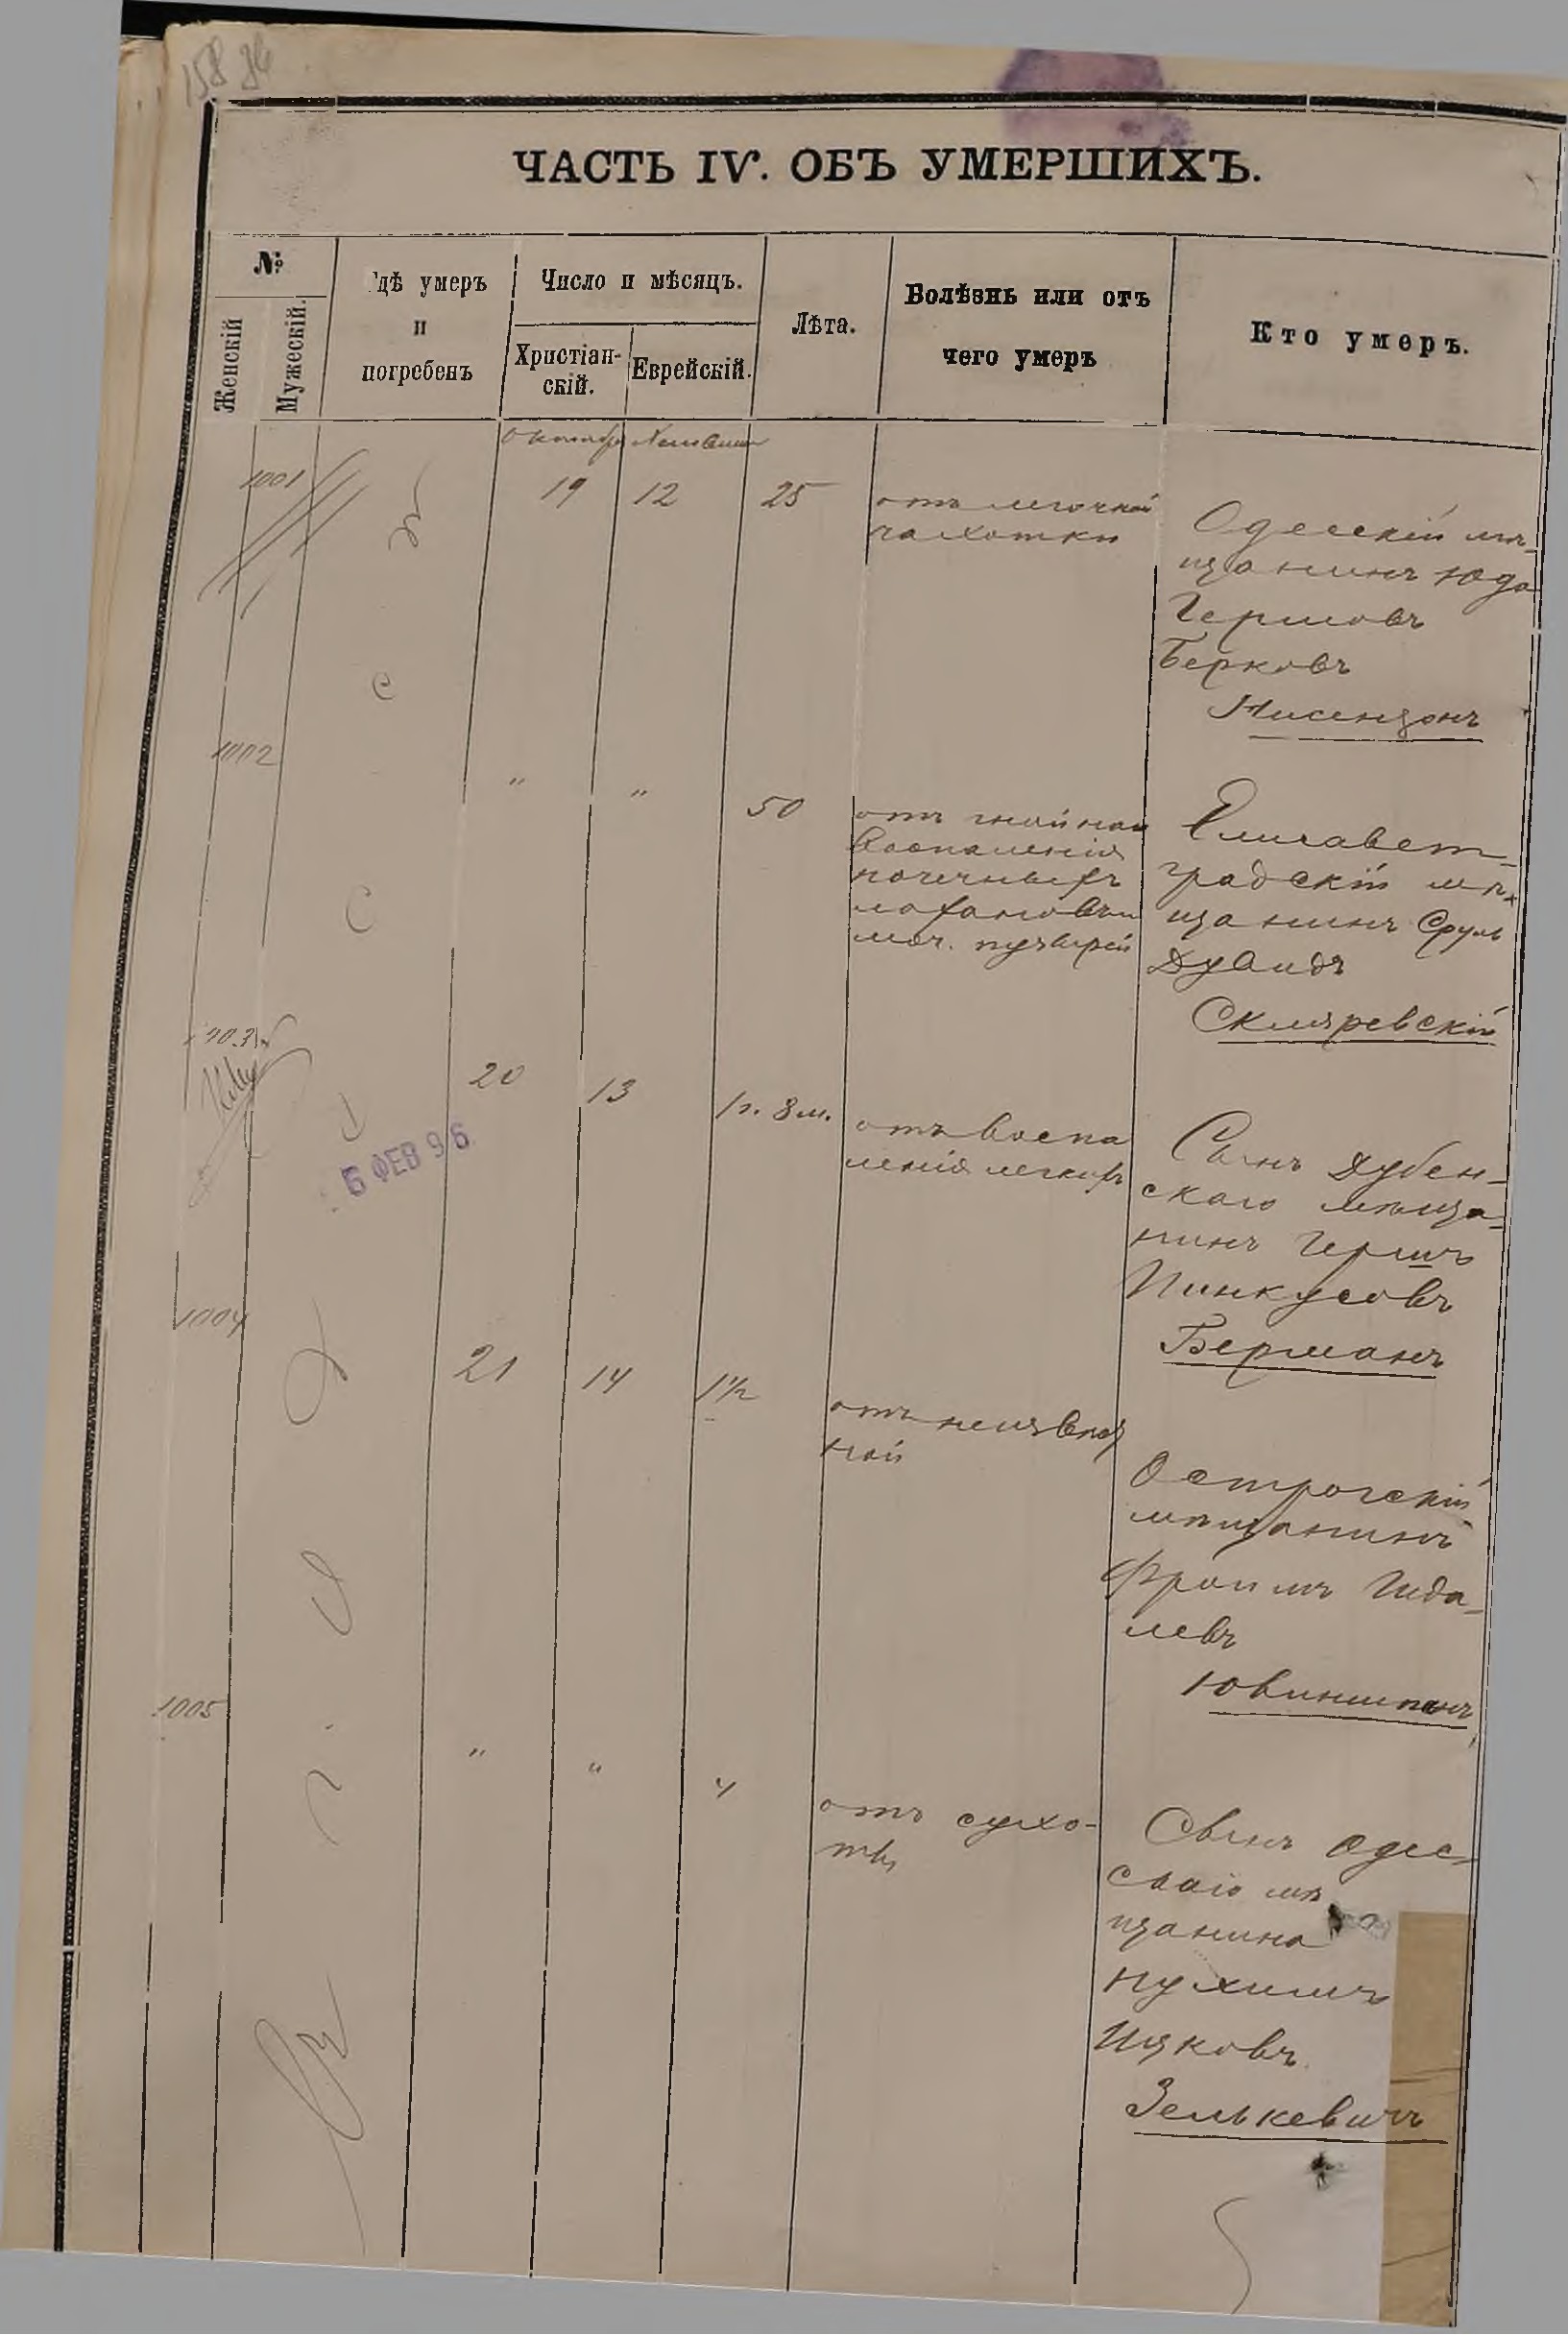 ЧАСТЬ IV. ОБЪ УМЕРШИХЪ.
№
Женскій
Мужескій.
Гдѣ умеръ
и
погребенъ
Число и мѣсяцъ.
Христіан-
скій.
Еврейскій.
Лѣта.
Болѣзнь или отъ
чего умеръ
Кто умеръ.
Октябрь
1001
19
12
25
отъ легочной
чахотки
Одесскій мѣ-
щанинъ Юда
Гершовъ
Берковъ
Нисензонъ
1002
"
"
50
отъ гнойнаго
воспаленія
почечныхъ
лоханокъ и
моч. пузыря
Елисавет-
градскій мѣ-
щанинъ Сруль
Дувидъ
Скляревскій
1003
20
13
1 г. 8 м.
отъ воспа
ленія легкихъ
Сынъ Дубен-
скаго мѣща-
нинъ Гершъ
Пинкусовъ
Берманъ
6 ФЕВ 96
1004
21
14
1 1/2
отъ неизвѣст
ной
Острогскій
мѣщанинъ
Фроимъ Шда-
левъ
1005
"
"
4
отъ сухо-
ты
Сынъ Одес-
скаго мѣ
щанина
Нухимъ
Ицковъ
Зелькевичъ